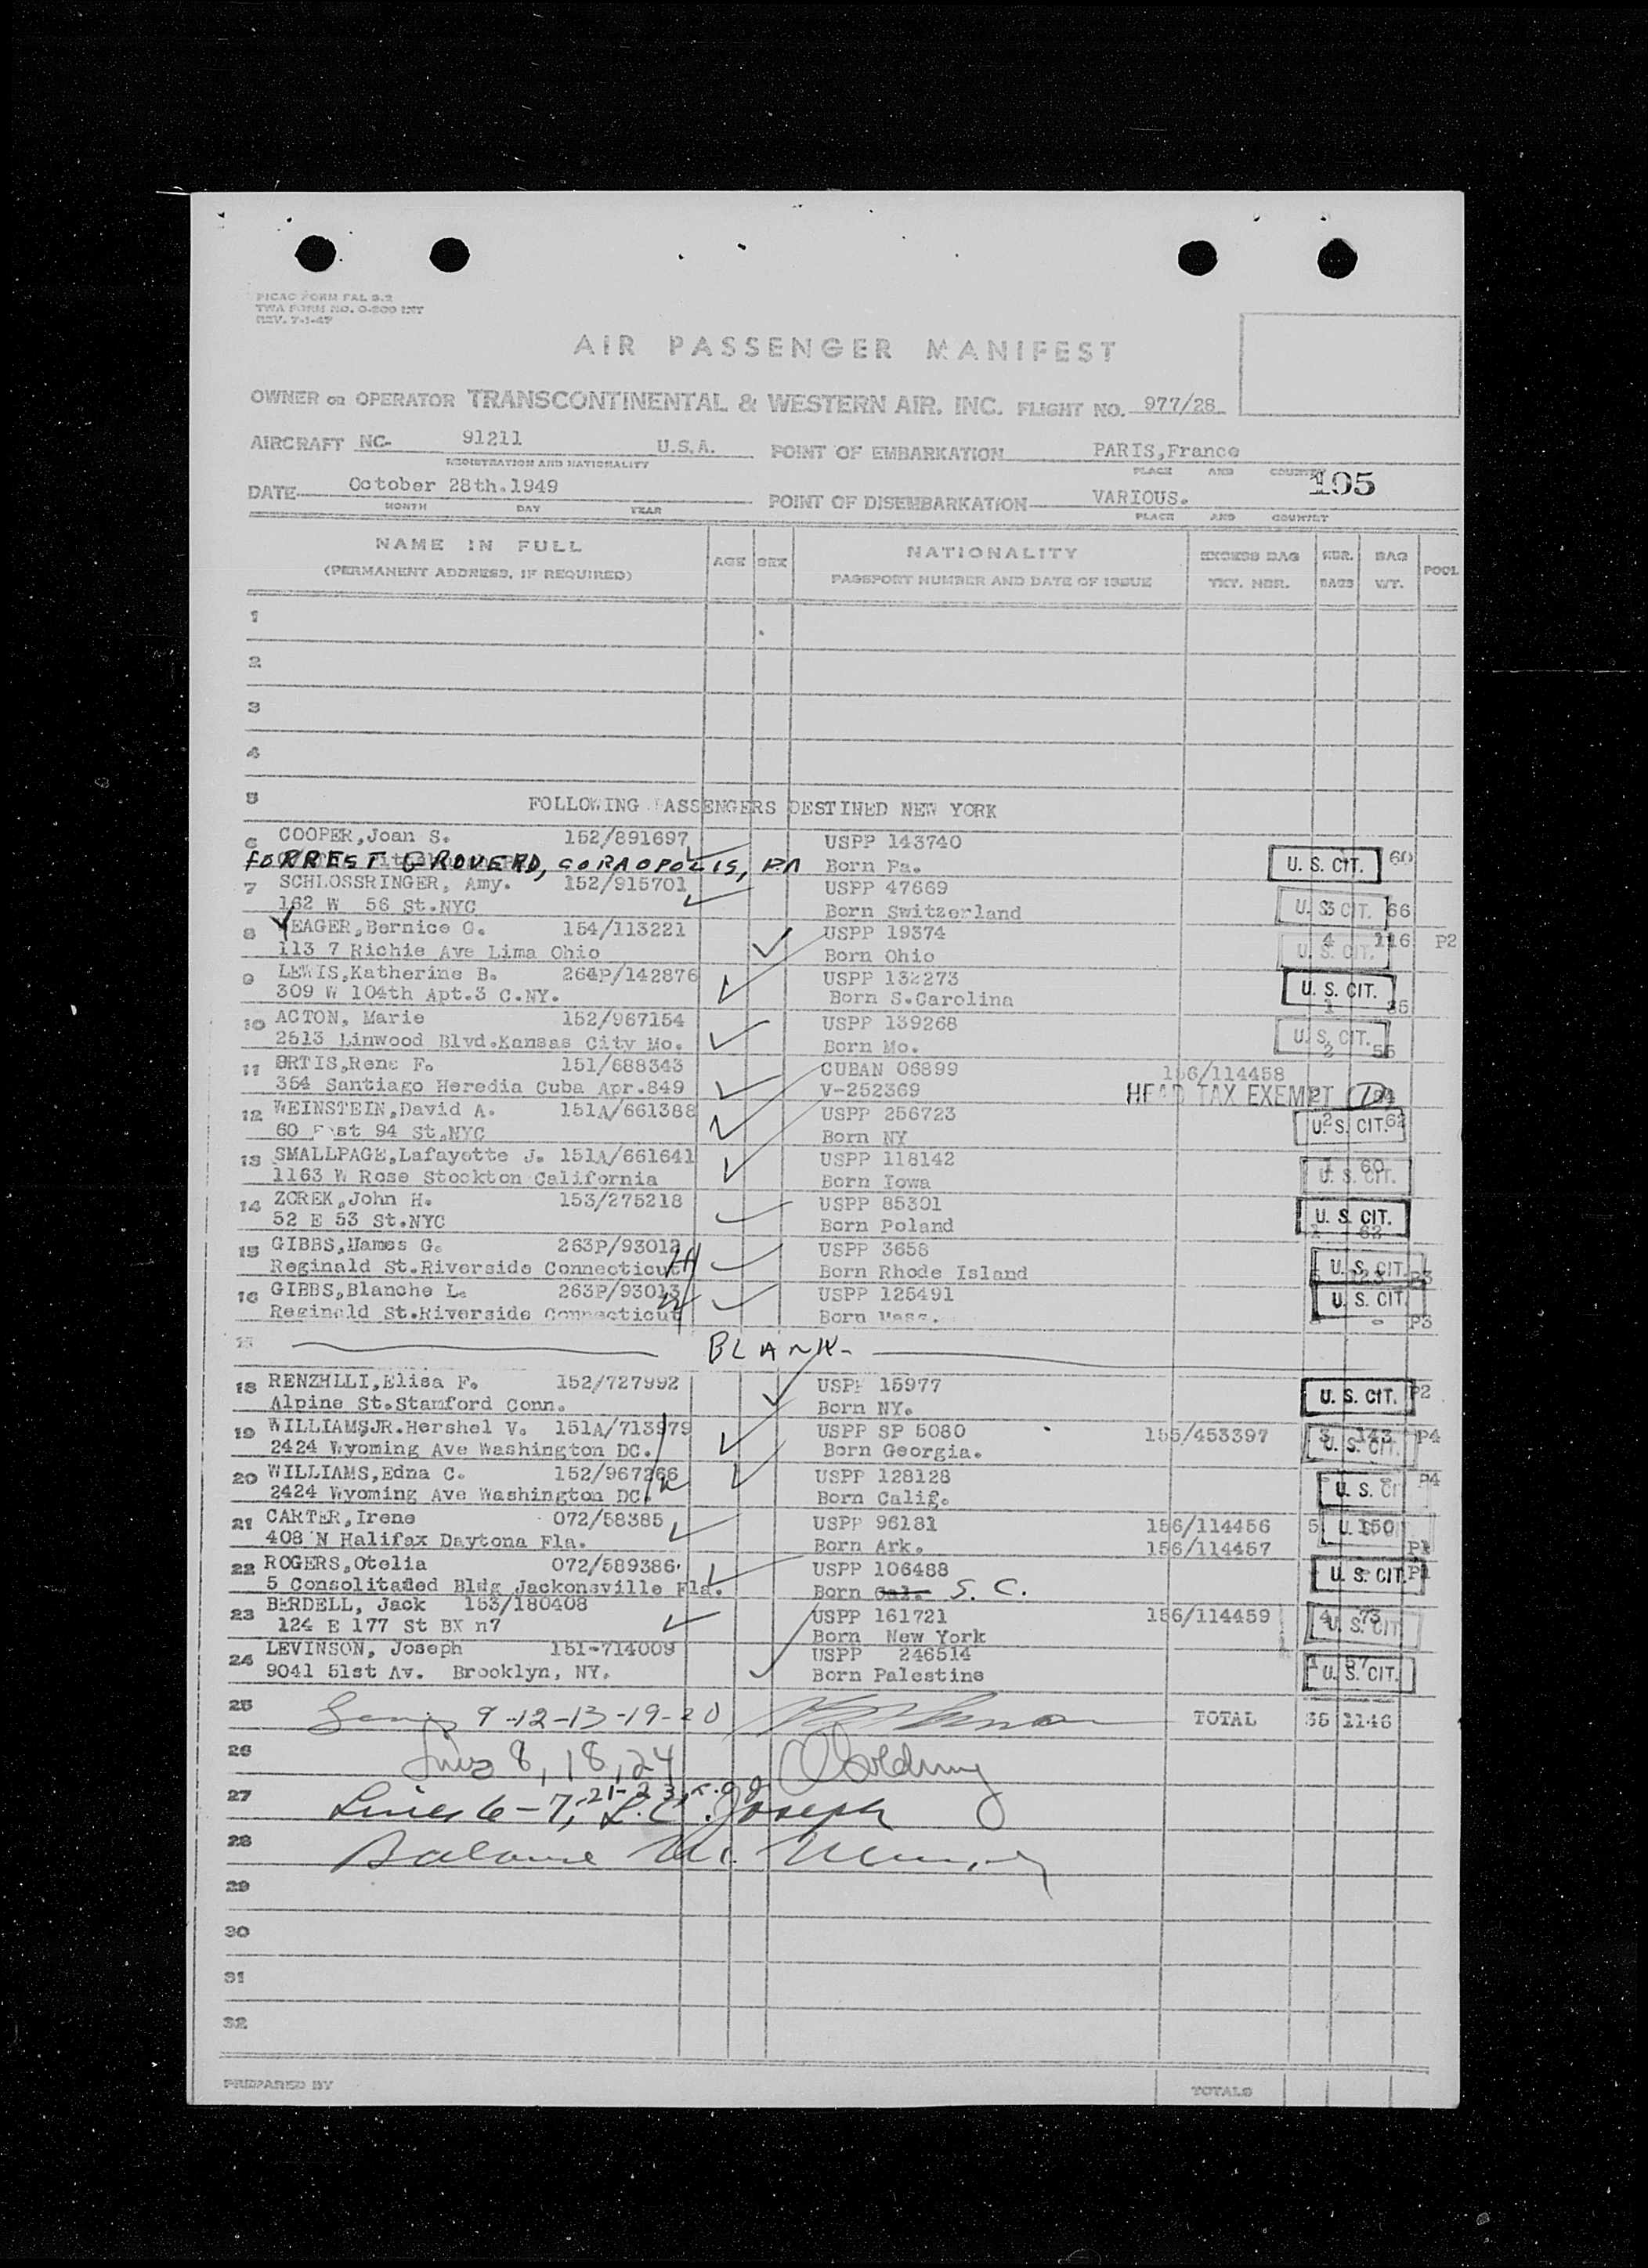 PICAO FORM FAL 3.2
TWA FORM NO. O-200 INT
REV. 7-1-47
AIR PASSENGER MANIFEST
OWNER OR OPERATOR TRANSCONTINENTAL & WESTERN AIR, INC. FLIGHT NO. 977/28
AIRCRAFT NC- 91211 U.S.A. POINT OF EMBARKATION PARIS,France
REGISTRATION AND NATIONALITY PLACE AND COUNTRY
105
DATE October 28th.1949 POINT OF DISEMBARKATION VARIOUS.
MONTH DAY YEAR PLACE AND COUNTRY
NAME IN FULL AGE SEX NATIONALITY EXCESS BAG NBR. BAG POOL
(PERMANENT ADDRESS, IF REQUIRED) PASSPORT NUMBER AND DATE OF ISSUE TKT. NBR. BAGS WT.
1
2
3
4
5 FOLLOWING PASSENGERS DESTINED NEW YORK
6 COOPER,Joan S. 152/891697 USPP 143740
FORREST GROVE RD, CORAOPOLIS, PA Born Pa. U. S. CIT. 60
7 SCHLOSSRINGER, Amy. 152/915701 USPP 47669
162 W 56 St.NYC Born Switzerland U. S. CIT. 3 66
8 YEAGER,Bernice G. 154/113221 USPP 19374 4 116 P2
113 7 Richie Ave Lima Ohio Born Ohio U. S. CIT.
9 LEWIS,Katherine B. 264P/142876 USPP 132273
309 W 104th Apt.3 C.NY. Born S.Carolina U. S. CIT. 1 35
10 ACTON, Marie 152/967154 USPP 139268
2513 Linwood Blvd.Kansas City Mo. Born Mo. U. S. CIT. 2 55
11 ORTIS,Rene F. 151/688343 CUBAN 06899 156/114458
354 Santiago Heredia Cuba Apr.849 V-252369 HEAD TAX EXEMPT
12 WEINSTEIN,David A. 151A/661388 USPP 256723
60 East 94 St.NYC Born NY U. S. CIT. 2 62
13 SMALLPAGE,Lafayette J. 151A/661641 USPP 118142 1 60
1163 W Rose Stockton California Born Iowa U. S. CIT.
14 ZOREK,John H. 153/275218 USPP 85301
52 E 53 St.NYC Born Poland U. S. CIT. 1 62
15 GIBBS,Hames G. 263P/93012 USPP 3658
Reginald St.Riverside Connecticut H Born Rhode Island U. S. CIT. 5 123 P3
16 GIBBS,Blanche L. 263P/93013 USPP 125491 U. S. CIT.
Reginald St.Riverside Connecticut W Born Mass. - - P3
17 BLANK-
18 RENZHLLI,Elisa F. 152/727992 USPP 15977 U. S. CIT. P2
Alpine St.Stamford Conn. Born NY.
19 WILLIAMSJR.Hershel V. 151A/713979 USPP SP 5080 155/453397 3 143 P4
2424 Wyoming Ave Washington DC. H Born Georgia. U. S. CIT.
20 WILLIAMS,Edna C. 152/967266 USPP 128128 - - P4
2424 Wyoming Ave Washington DC. W Born Calif. U. S. CIT
21 CARTER,Irene 072/58385 USPP 96181 156/114456 5 150
408 N Halifax Daytona Fla. Born Ark. 156/114457 P1
22 ROGERS,Otelia 072/589386 USPP 106488 U. S. CIT. P1
5 Consolitaded Bldg Jackonsville Fla. Born Cal. S. C.
23 BERDELL, Jack 153/180408 USPP 161721 156/114459 4 73
124 E 177 St BX n7 Born New York U. S. CIT
24 LEVINSON, Joseph 151-714009 USPP 246514 1 57
9041 51st Av. Brooklyn, NY. Born Palestine U. S. CIT.
25 9-12-13-19-20 TOTAL 38 1146
26 Lines 8, 18, 24
27 Lines 6-7, 21-23, L.C. Joseph
28 Balance
29
30
31
32
PREPARED BY TOTALS